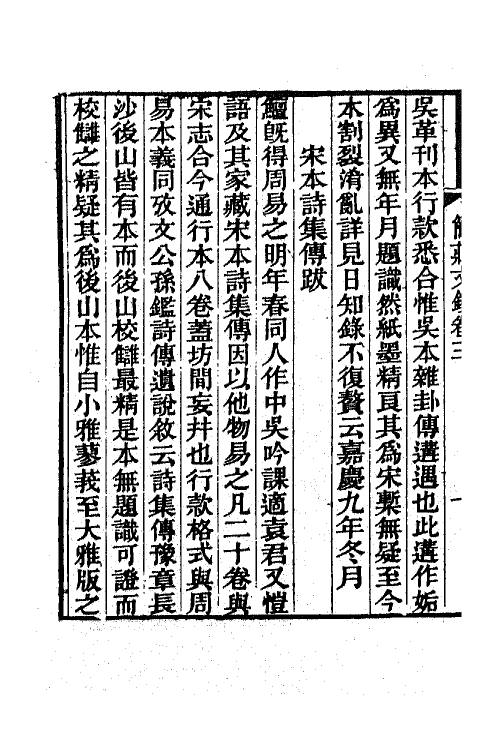 吳革刊本行款悉合惟吳本雜卦傳遘遇也此遘作姤
爲異又無年月題識然紙墨精良其爲宋槧無疑至今
本割裂淆亂詳見日知錄不復贅云嘉慶九年冬月
宋本詩集傳跋
鱣既得周易之明年春同人作中吳吟課適袁君又愷
語及其家藏宋本詩集傳因以他物易之凡二十卷與
宋志合今通行本八卷蓋坊間妄幷也行款格式與周
易本義同攷文公孫鑑詩傳遺說敘云詩集傳豫章長
沙後山皆有本而後山校讎最精是本無題識可證而
校讎之精疑其爲後山本惟自小雅蓼莪至大雅版之
簡莊文鈔卷三
一